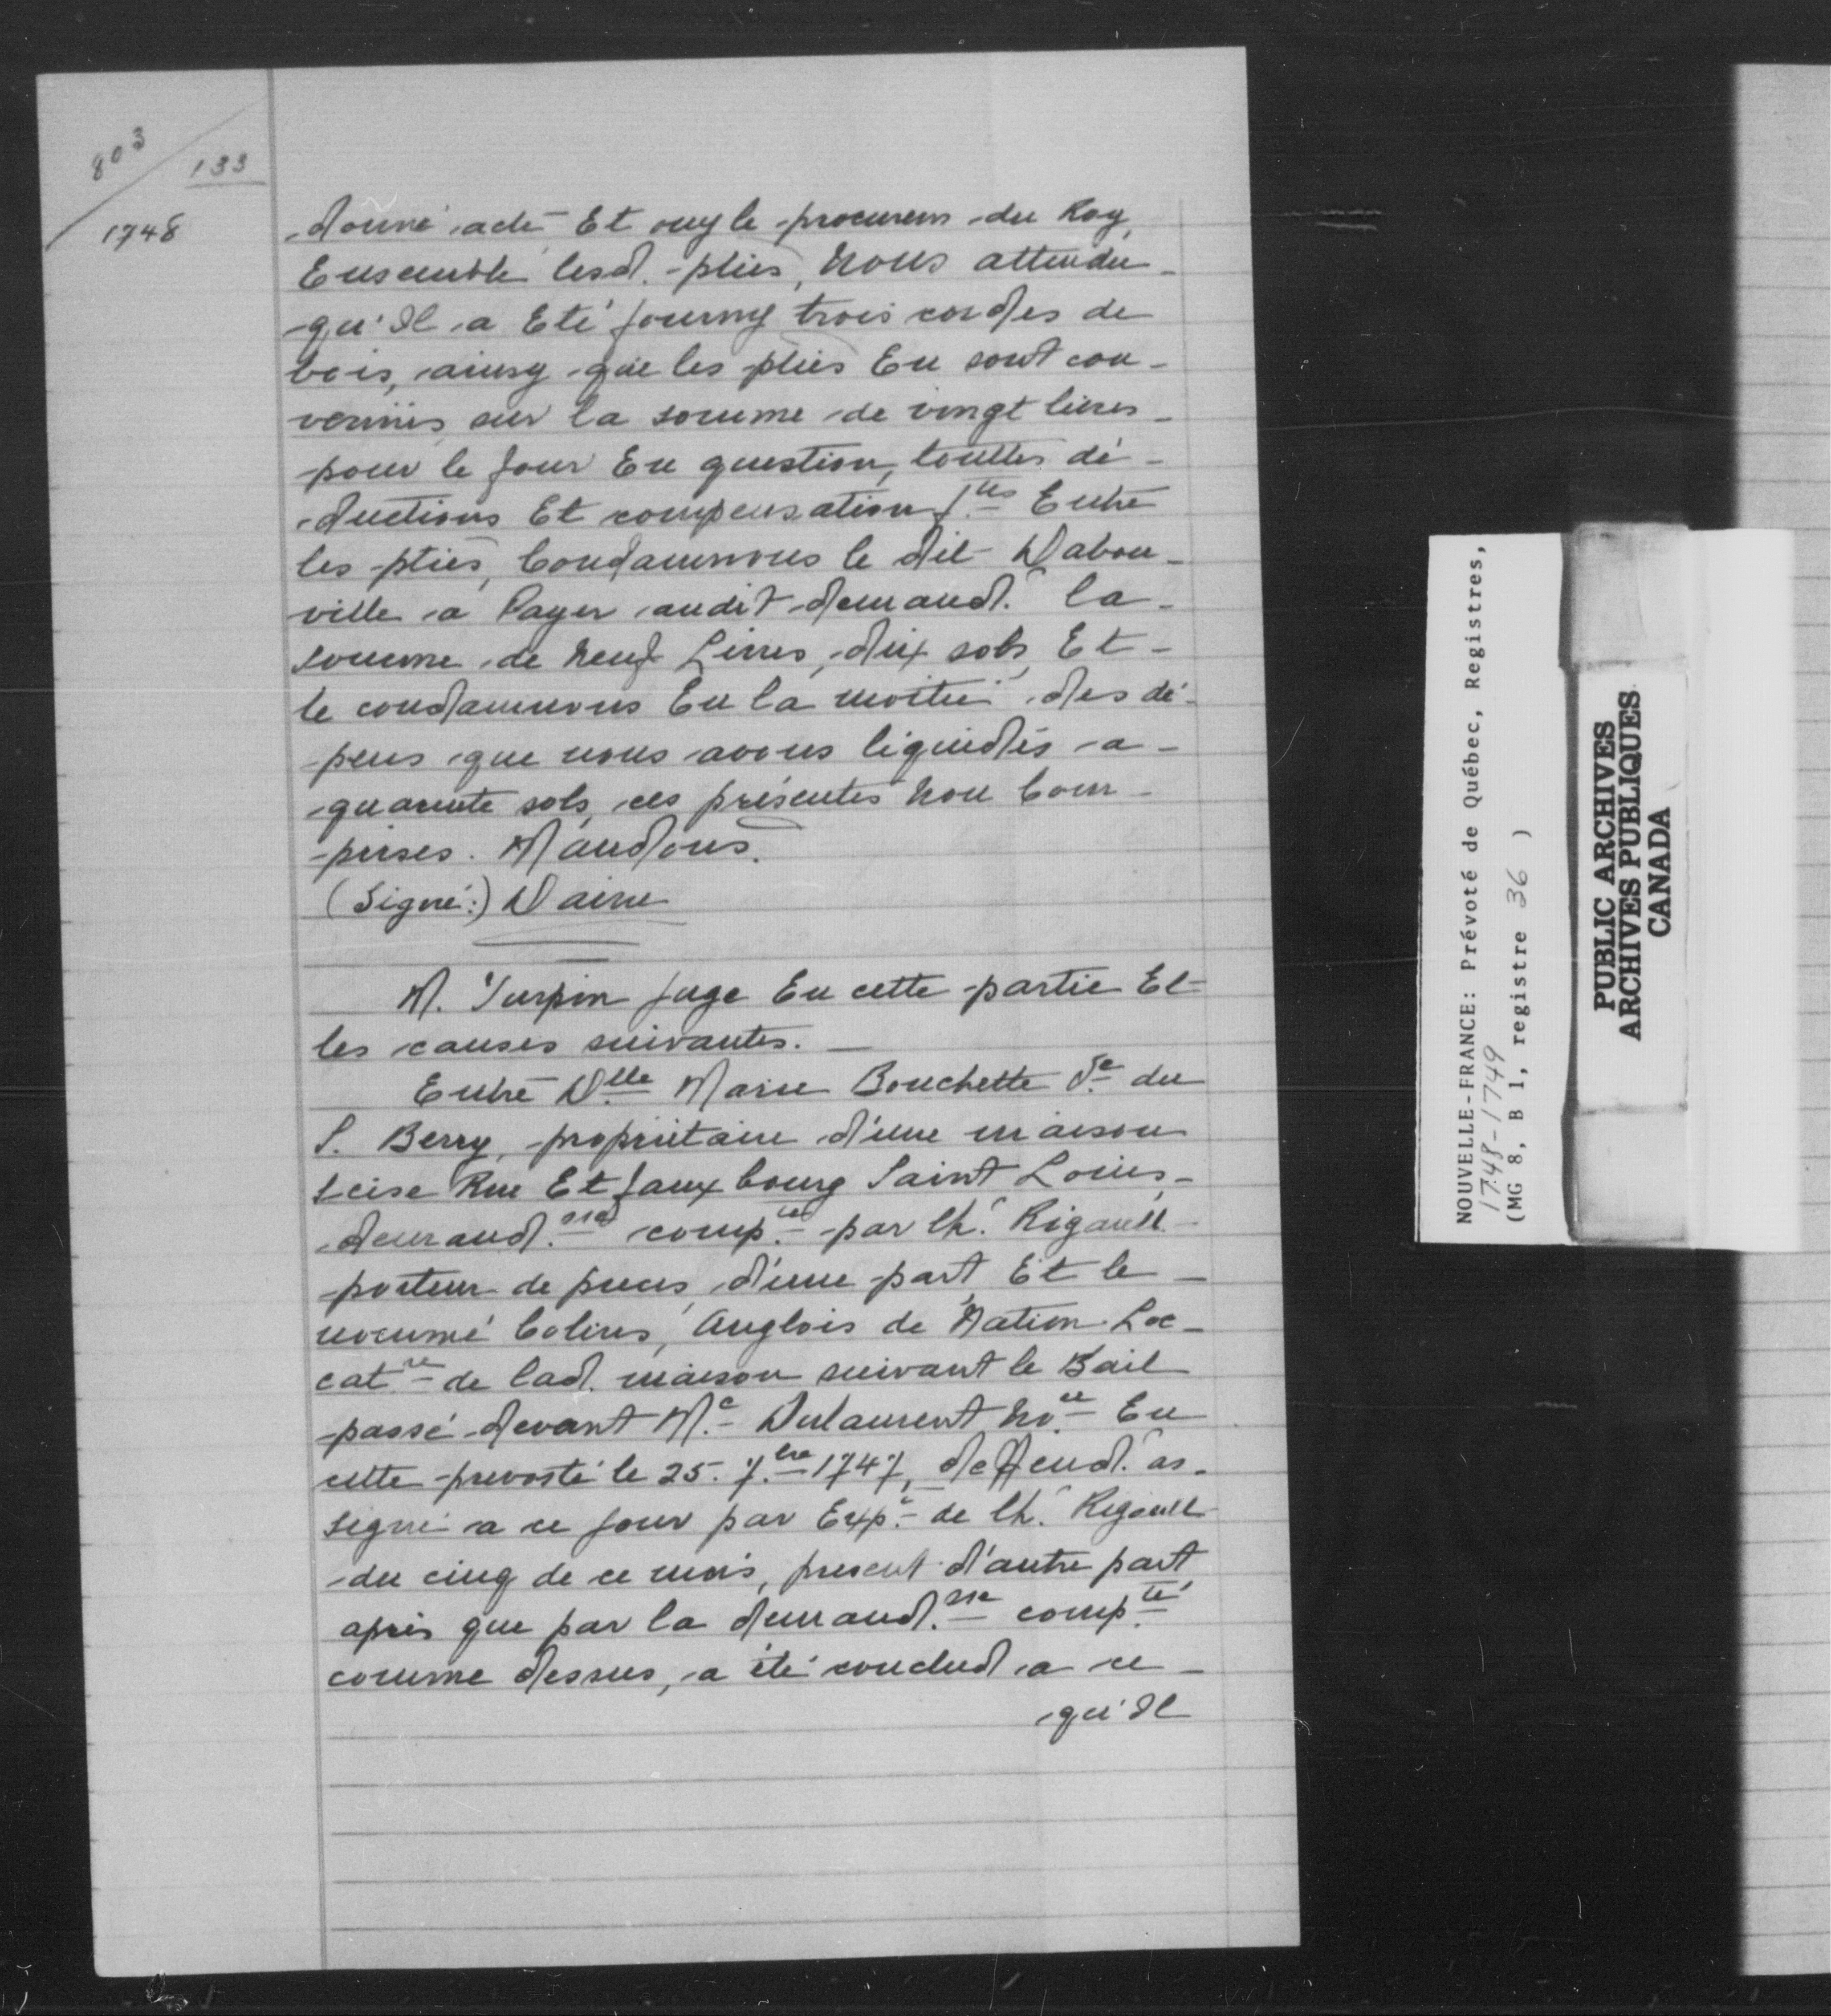 803
133
1748
donné acte Et ouy le procureur du Roy,
Ensemble lesd. pties, Nous attendu
qu'Il a Eté fourny trois cordes de
bois, ainsy que les pties En sont con-
vennües sur la somme de vingt livres
pour le four En question, touttes dé-
ductions Et compensation f.tes Entre
les pties, Condamnons le dit Dabon-
ville a Payer audit demand.r la
somme de neuf Livres, dix sols, Et
le condamnons En la moitié des dé-
pens que nous avons liquidés a
quarente sols, ces présentes non Com-
prises. Mandons.
(Signé:) Daine
M. Turpin juge En cette partie Et
les causes suivantes.
Entre D.lle Marie Bouchette V.e du
S. Berry, propriétaire d'une maison
scise Rue Et fauxbourg Saint Louis,
demand.sse comp.te par Ch.r Rigault
porteur de pieces, d'une part, Et le
nommé Colins, Anglois de Nation Loc-
cat.re de lad. maison suivant le Bail
passé devant M.e Dulaurent No.re En
cette prevosté le 25. 7.bre 1747, deffend.r as-
signé a ce jour par Exp.t de Ch.r Rigault
du cinq de ce mois, present d'autre part
après que par la demand.sse comp.te
comme dessus, a été conclud a ce
qu'Il
NOUVELLE-FRANCE: Prévoté de Québec, Registres,
1748-1749
(MG 8, B 1, registre 36 )
PUBLIC ARCHIVES
ARCHIVES PUBLIQUES
CANADA